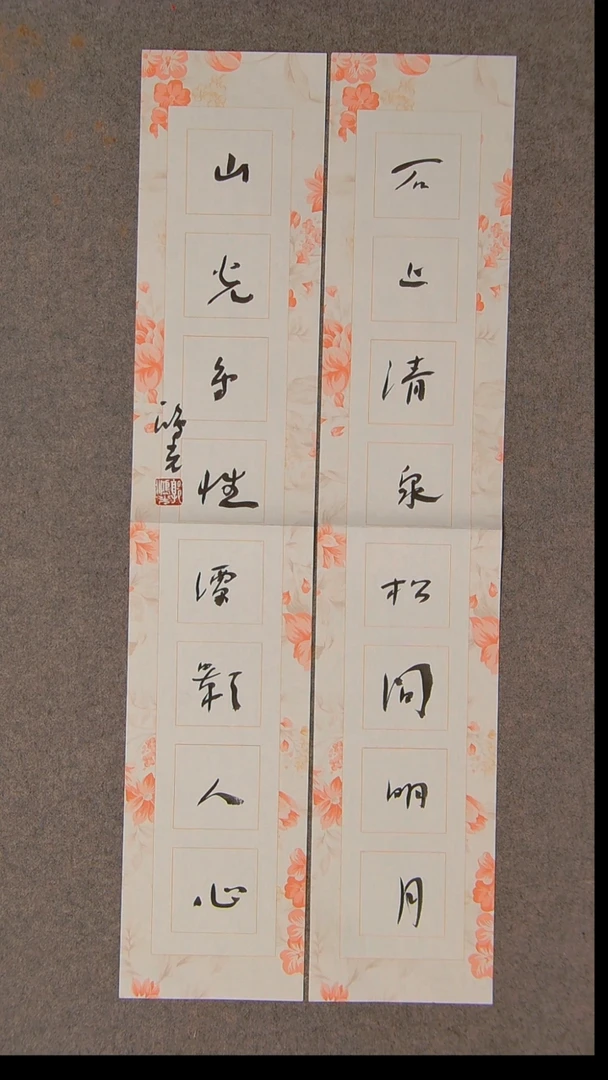 石上清泉松间明月
山光鸟性潭影人心